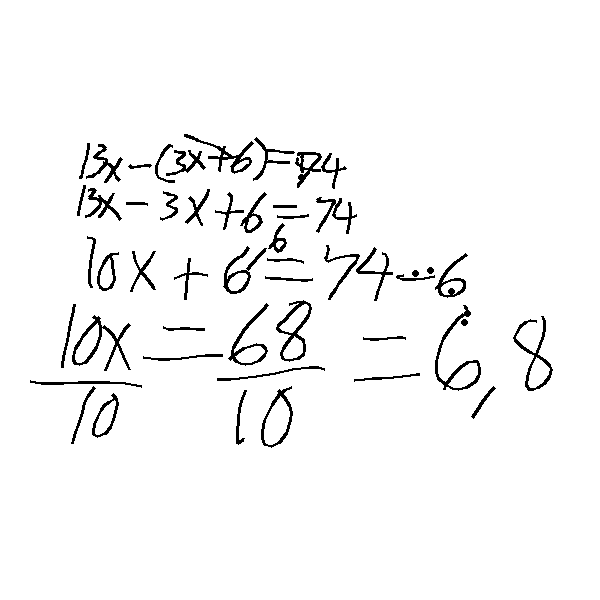 13x-(3x+6)=74
13x-3x+6=74
10x+6=74-6
10x/10=68/10=6,8